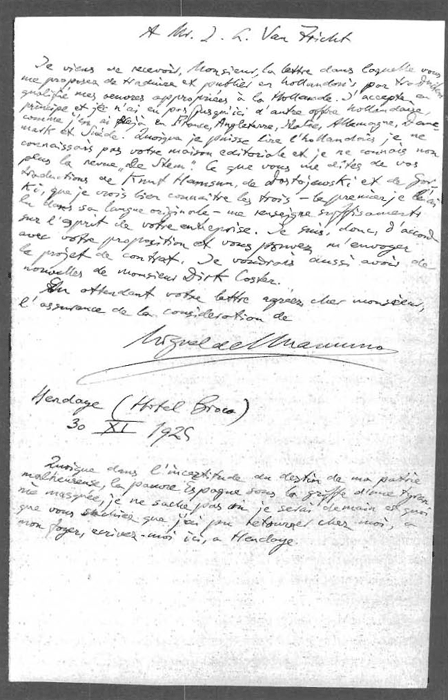 A Mr. J. L. Van Tricht
Je viens de recevoir, Monsieur, la lettre dans laquelle vous
me proposez de traduire et publier en hollandais, par traducteur
qualifié mes oeuvres appropriées à la Hollande. J'accepte en
principe et je n'ai eu pas jusqu'ici d'autre offre hollandaise
comme j'en ai déjà en France, Angleterre, Italie, Allemagne, Dane
mark et Suède. Quoique je puisse lire l'hollandais je ne
connaissais pas votre maison editoriale et je ne connais non
plus la revue "De Stem". Ce que vous me dites de vos
traductions de Knut Hamsun, de Dostojewski et de Gor
ki, que je crois bien connaître les trois - le premier je l'ai
lu dans sa langue originale - me renseigne suffisamment
sur l'esprit de votre entreprise. Je suis, donc, d'accord
avec votre proposition et vous pouvez m'envoyer
le projet de contrat. Je voudrais aussi avoir de
nouvelles de monsieur Dirk Coster.
En attendant votre lettre agréez, cher monsieur,
l'assurance de la consideration de
Miguel de Unamuno
Hendaye (Hotel Broca)
30 XI 1925
Quoique dans l'incertitude du destin de ma patrie
malheureuse, la pauvre Espagne sous la griffe d'une tyran
nie masquée, je ne sache pas où je serai demain et quoi
que vous sachiez que j'ai pu retourner chez moi, a
mon foyer, ecrivez-moi ici, a Hendaye.